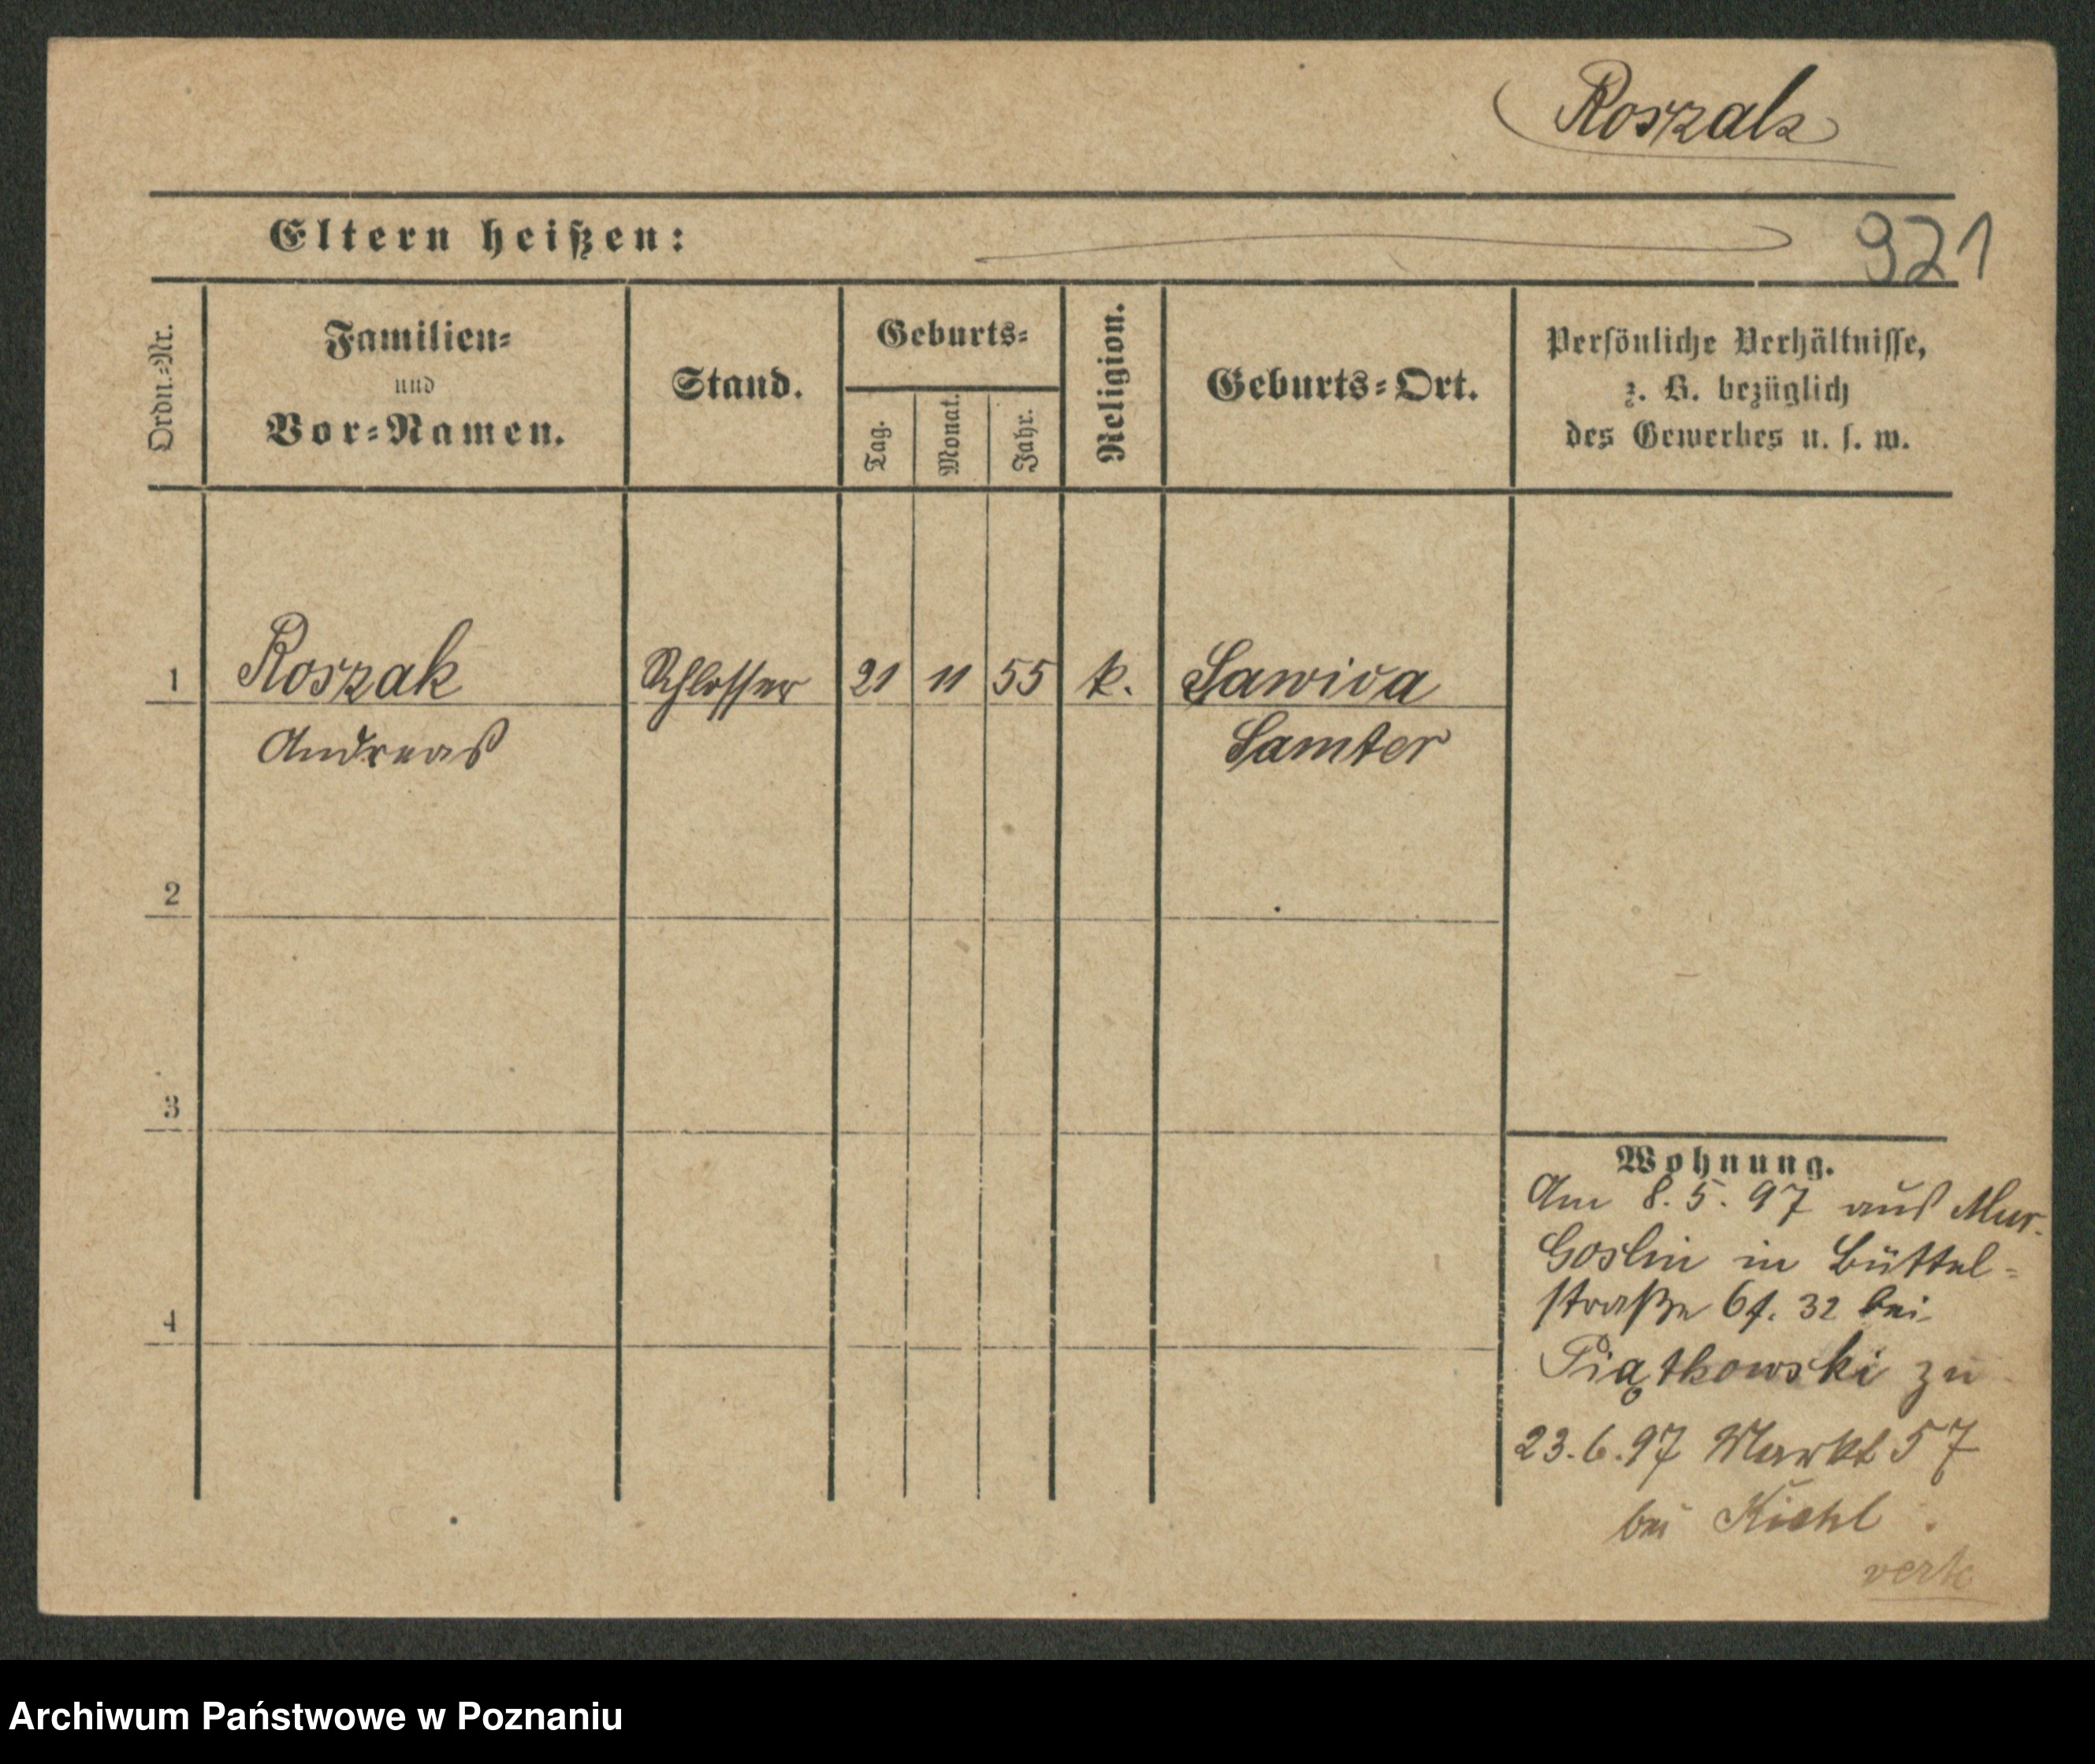 Roszak
Eltern heißen:
921
Ordn.-Nr.
Familien-
und
Vor-Namen.
Stand.
Geburts-
Tag.
Monat.
Jahr.
Religion.
Geburts-Ort.
Persönliche Verhältnisse,
z. B. bezüglich
des Gewerbes u. s. w.
1 Roszak Schlosser 21 11 55 k. Sawida
Andreas Samter
2
3
4
Wohnung.
Am 8.5.97 aus Mur.
Goslin in Büttel-
straße 32 bei
Piątkowski zu
23.6.97 Markt 57
bei Kiehl
Archiwum Państwowe w Poznaniu